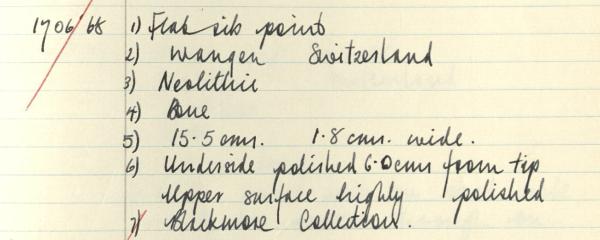 1706/68 1) Flat rib point
2) Wangen Switzerland
3) Neolithic
4) Bone
5) 15.5 cms. 1.8 cms. wide.
6) Underside polished 6.0cms from tip
Upper surface highly polished
7) Blackmore Collection.